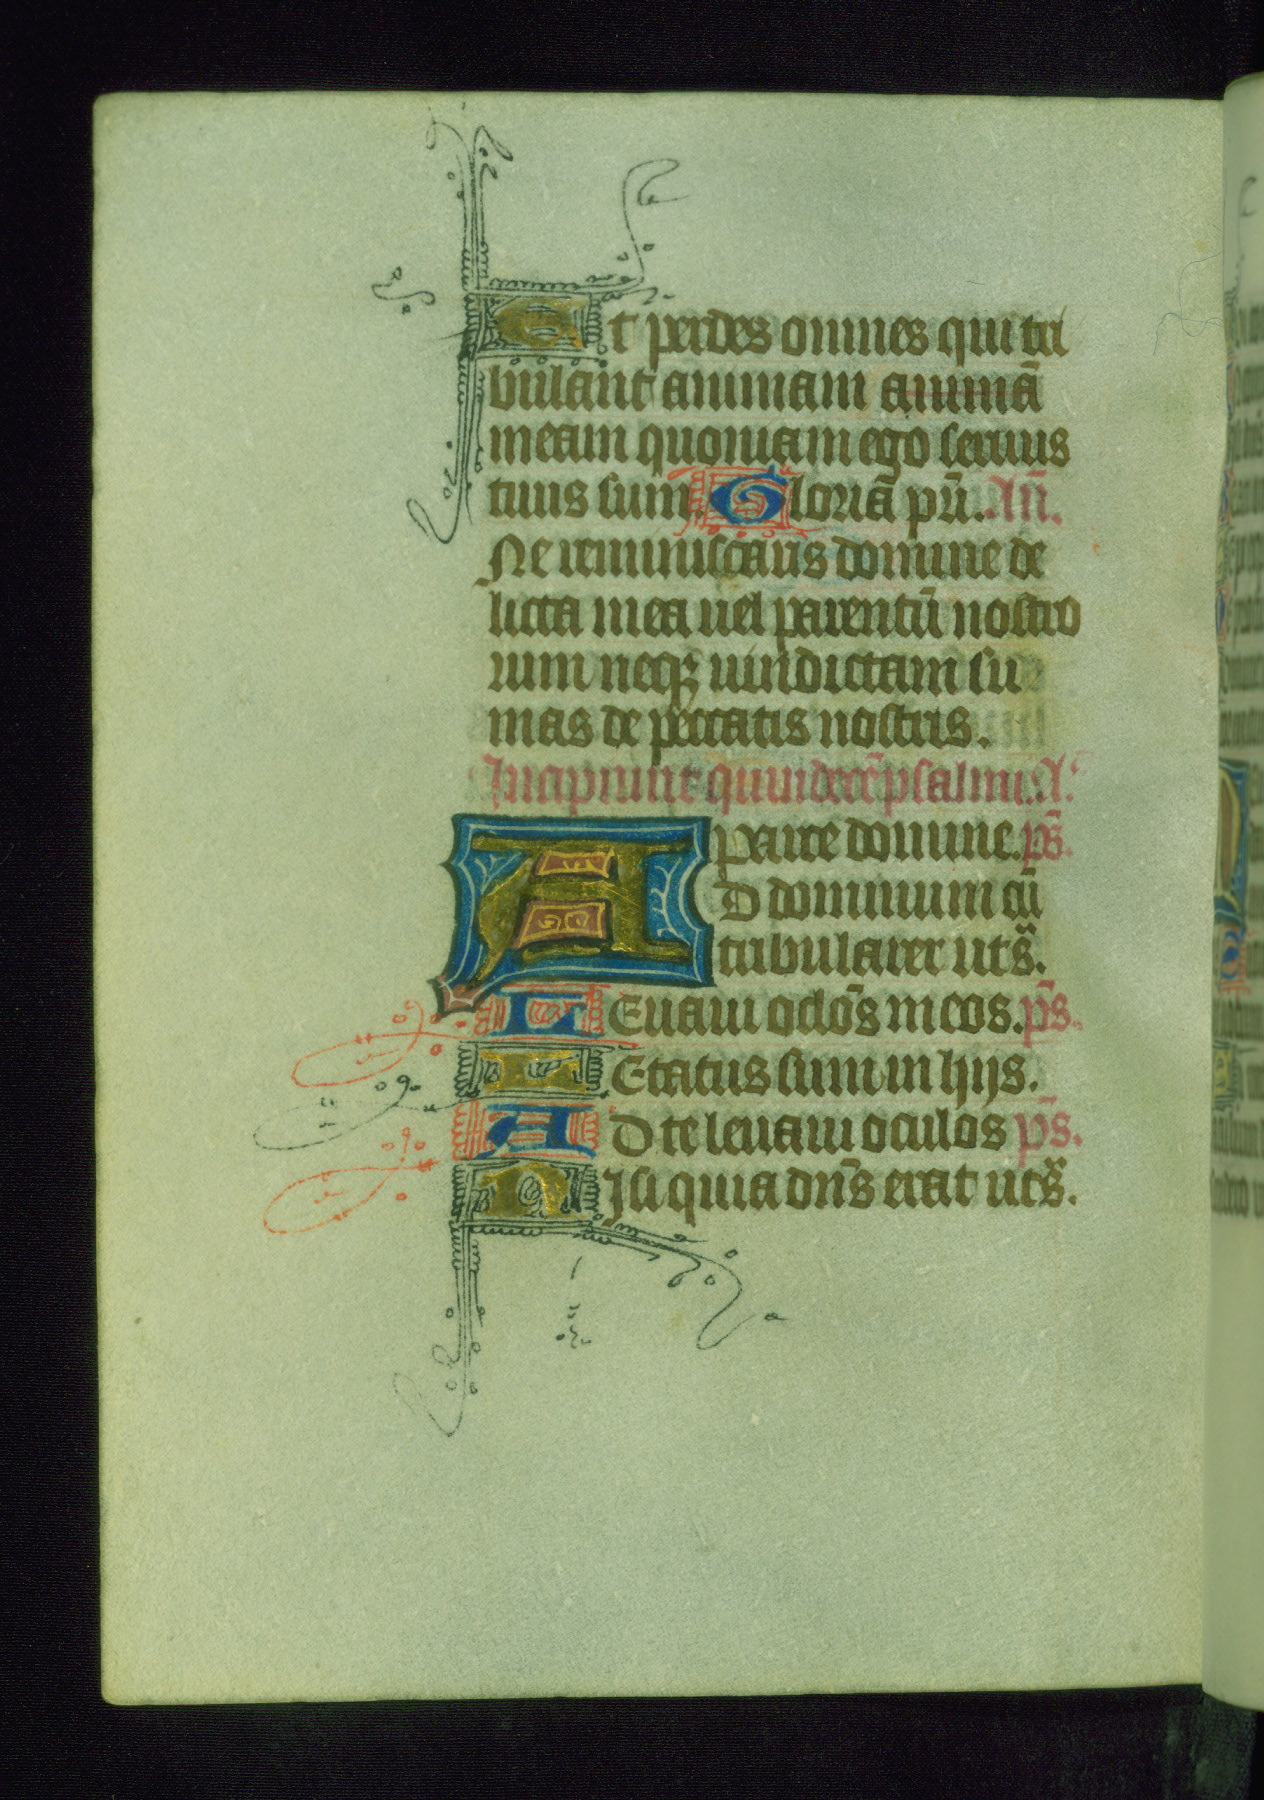 Et perdes omnes qui tri
bulant animam animā
meam quoniam ego seruus
tuus sum. Gloriā pr̄i. Añ.
Ne reminiscaris domine de
licta mea uel parentū nostro
rum neqꝫ uindictam su
mas de peccatis nostris.
Incipiunt quindecē psalmi. A.
Aparite domine. ps̄.
D dominum cū
tribularer ut sͣ.
LEuaui oclōs meos. ps̄.
LEtatus sum in hijs.
AD te leuaui oculos ps̄.
NIsi quia dn̄s erat ut sͣ.